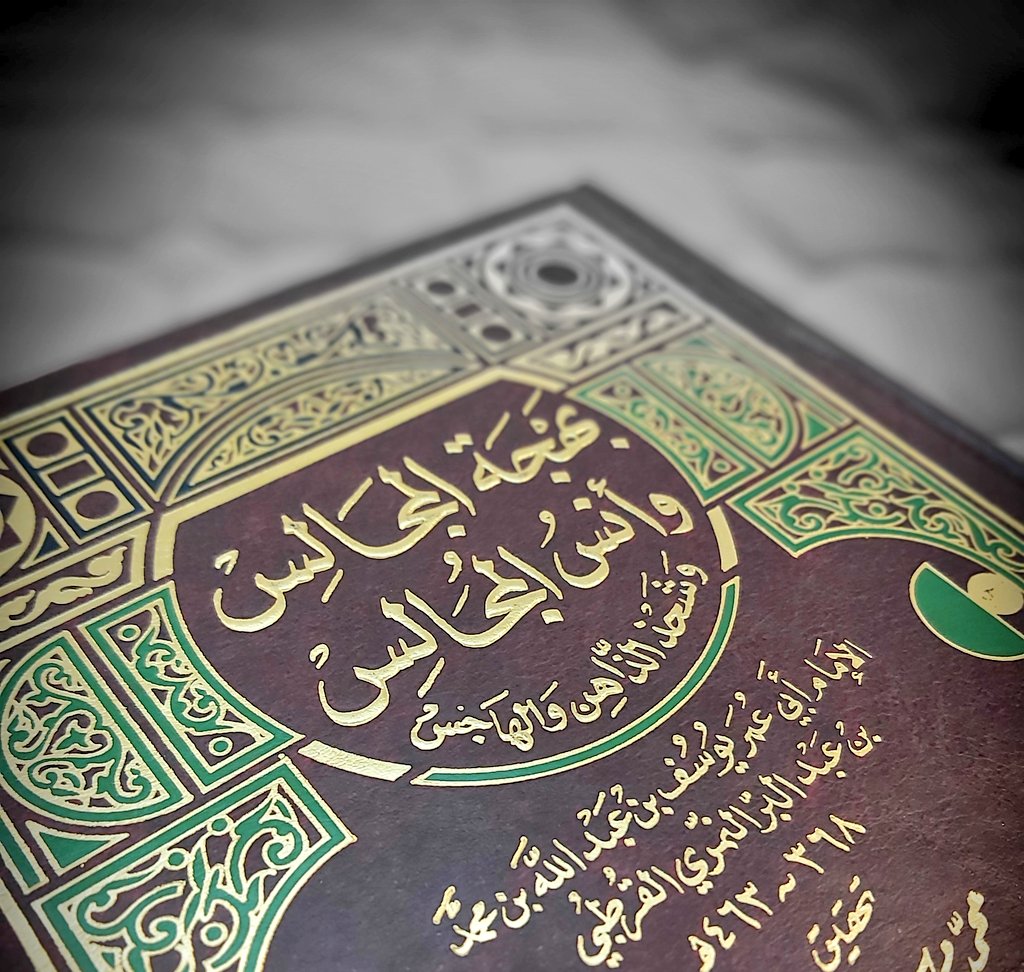 بَهْجَة المجَالِسْ
وأنسُ المُجَالِسْ
وَشَحْذ الذَّاهِن وَالهَاجِسْ
الإمَام أبي عُمَر يُوسُف بن عَبْد اللَّه بن محمَّد
بن عَبْد البَرّ النمَري القرطبي
٣٦٨ - ٤٦٣هـ
تحقيق
محمّد